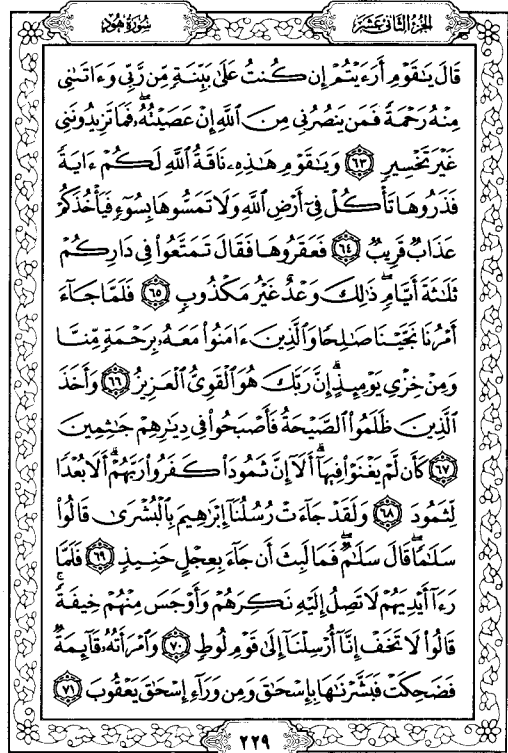 الجزء الثاني عشر
سورة هود
قَالَ يَٰقَوْمِ أَرَءَيْتُمْ إِن كُنتُ عَلَىٰ بَيِّنَةٍ مِّن رَّبِّي وَءَاتَىٰنِي
مِنْهُ رَحْمَةً فَمَن يَنصُرُنِي مِنَ ٱللَّهِ إِنْ عَصَيْتُهُۥ فَمَا تَزِيدُونَنِي
غَيْرَ تَخْسِيرٍ ٦٣ وَيَٰقَوْمِ هَٰذِهِۦ نَاقَةُ ٱللَّهِ لَكُمْ ءَايَةً
فَذَرُوهَا تَأْكُلْ فِيٓ أَرْضِ ٱللَّهِ وَلَا تَمَسُّوهَا بِسُوٓءٍ فَيَأْخُذَكُمْ
عَذَابٌ قَرِيبٌ ٦٤ فَعَقَرُوهَا فَقَالَ تَمَتَّعُوا۟ فِي دَارِكُمْ
ثَلَٰثَةَ أَيَّامٍ ۖ ذَٰلِكَ وَعْدٌ غَيْرُ مَكْذُوبٍ ٦٥ فَلَمَّا جَآءَ
أَمْرُنَا نَجَّيْنَا صَٰلِحًا وَٱلَّذِينَ ءَامَنُوا۟ مَعَهُۥ بِرَحْمَةٍ مِّنَّا
وَمِنْ خِزْيِ يَوْمِئِذٍ ۗ إِنَّ رَبَّكَ هُوَ ٱلْقَوِيُّ ٱلْعَزِيزُ ٦٦ وَأَخَذَ
ٱلَّذِينَ ظَلَمُوا۟ ٱلصَّيْحَةُ فَأَصْبَحُوا۟ فِي دِيَٰرِهِمْ جَٰثِمِينَ
٦٧ كَأَن لَّمْ يَغْنَوْا۟ فِيهَآ ۗ أَلَآ إِنَّ ثَمُودَا۟ كَفَرُوا۟ رَبَّهُمْ ۗ أَلَا بُعْدًا
لِّثَمُودَ ٦٨ وَلَقَدْ جَآءَتْ رُسُلُنَآ إِبْرَٰهِيمَ بِٱلْبُشْرَىٰ قَالُوا۟
سَلَٰمًا ۖ قَالَ سَلَٰمٌ ۖ فَمَا لَبِثَ أَن جَآءَ بِعِجْلٍ حَنِيذٍ ٦٩ فَلَمَّا
رَءَآ أَيْدِيَهُمْ لَا تَصِلُ إِلَيْهِ نَكِرَهُمْ وَأَوْجَسَ مِنْهُمْ خِيفَةً ۚ
قَالُوا۟ لَا تَخَفْ إِنَّآ أُرْسِلْنَآ إِلَىٰ قَوْمِ لُوطٍ ٧٠ وَٱمْرَأَتُهُۥ قَآئِمَةٌ
فَضَحِكَتْ فَبَشَّرْنَٰهَا بِإِسْحَٰقَ وَمِن وَرَآءِ إِسْحَٰقَ يَعْقُوبَ ٧١
٢٢٩